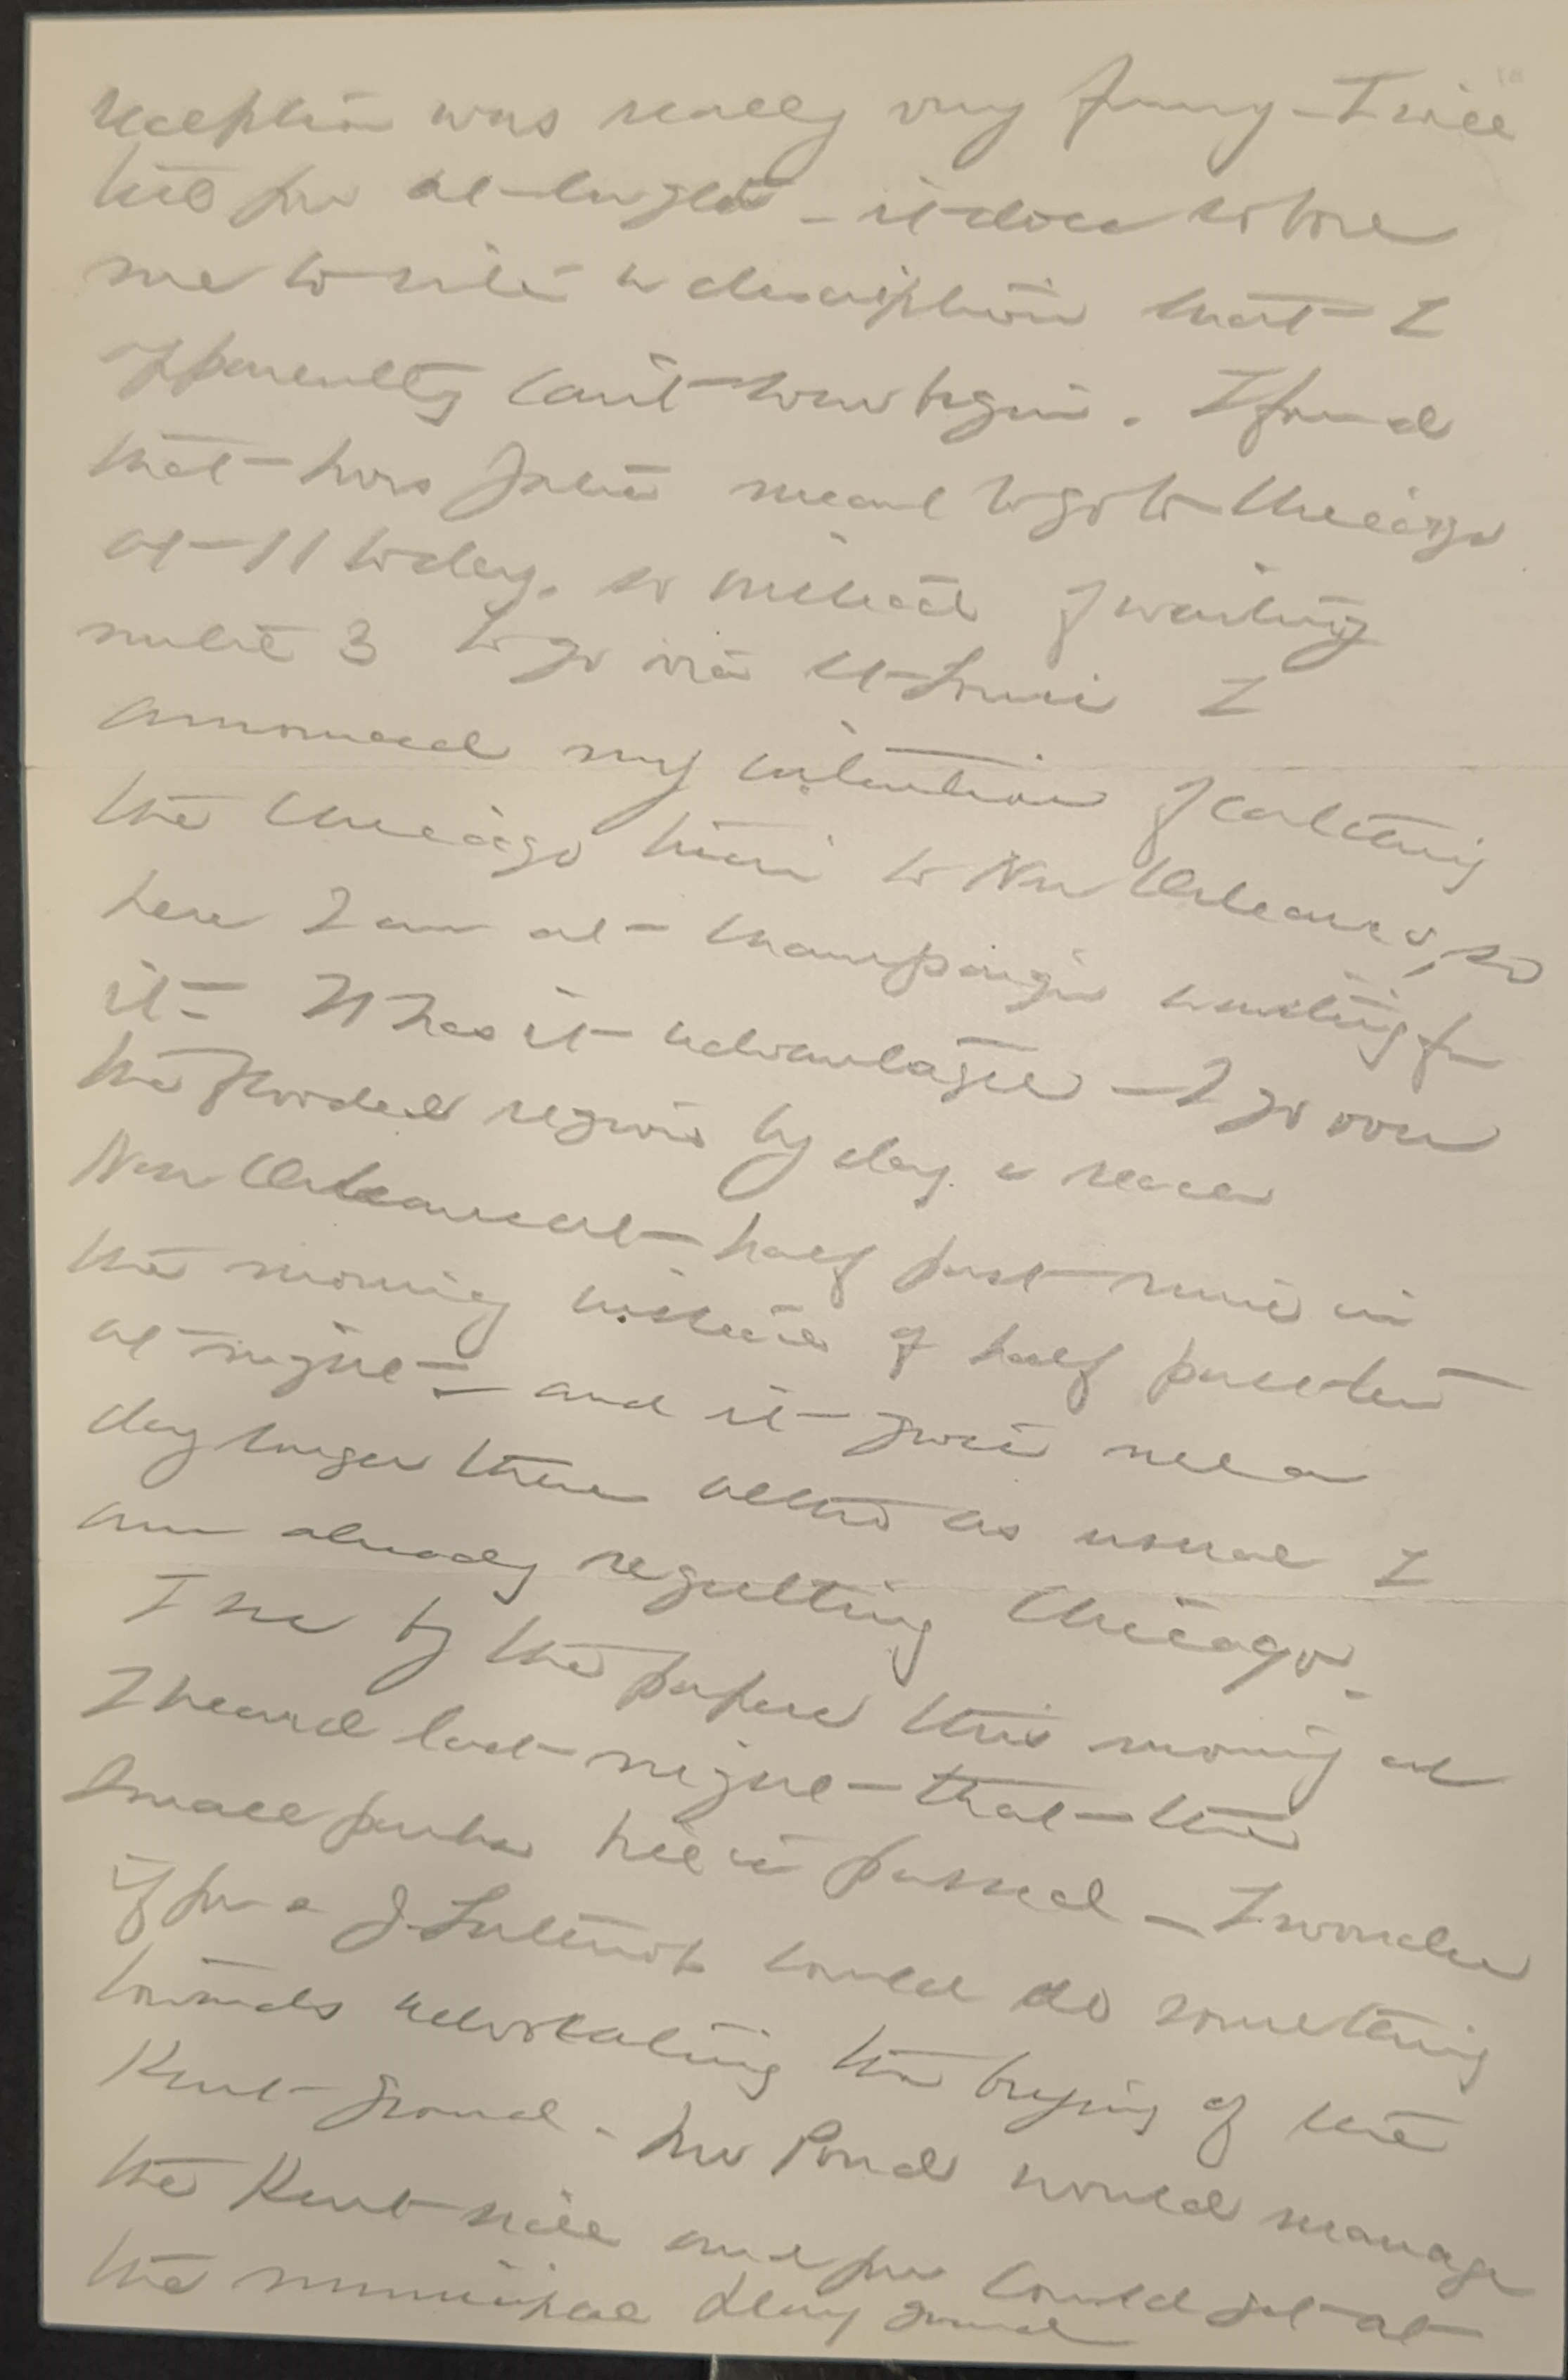 reception was really very funny - I will
tell you at length - it does so bore
me to write a description that I
apparently can't ever begin. I found
that Mrs meant to go to Chicago
at 11 today. so instead of waiting
until 3 to go via St Louis I
announced my intention of catching
the Chicago train to New Orleans, so
here I am at Champaign waiting for
it - It has its advantages - I go over
the flooded region by day & reach
New Orleans at half past nine in
the morning instead of half past ten
at night - and it gives me a
day longer there altho as usual I
am already regretting Chicago.
I see by the papers this morning as
I heard last night - that the
Small parks bill is passed - I wonder
if you & could do something
towards advocating the buying of the
Kent ground. Mr Pond would manage
the Kent side and you could get at
the municipal play ground